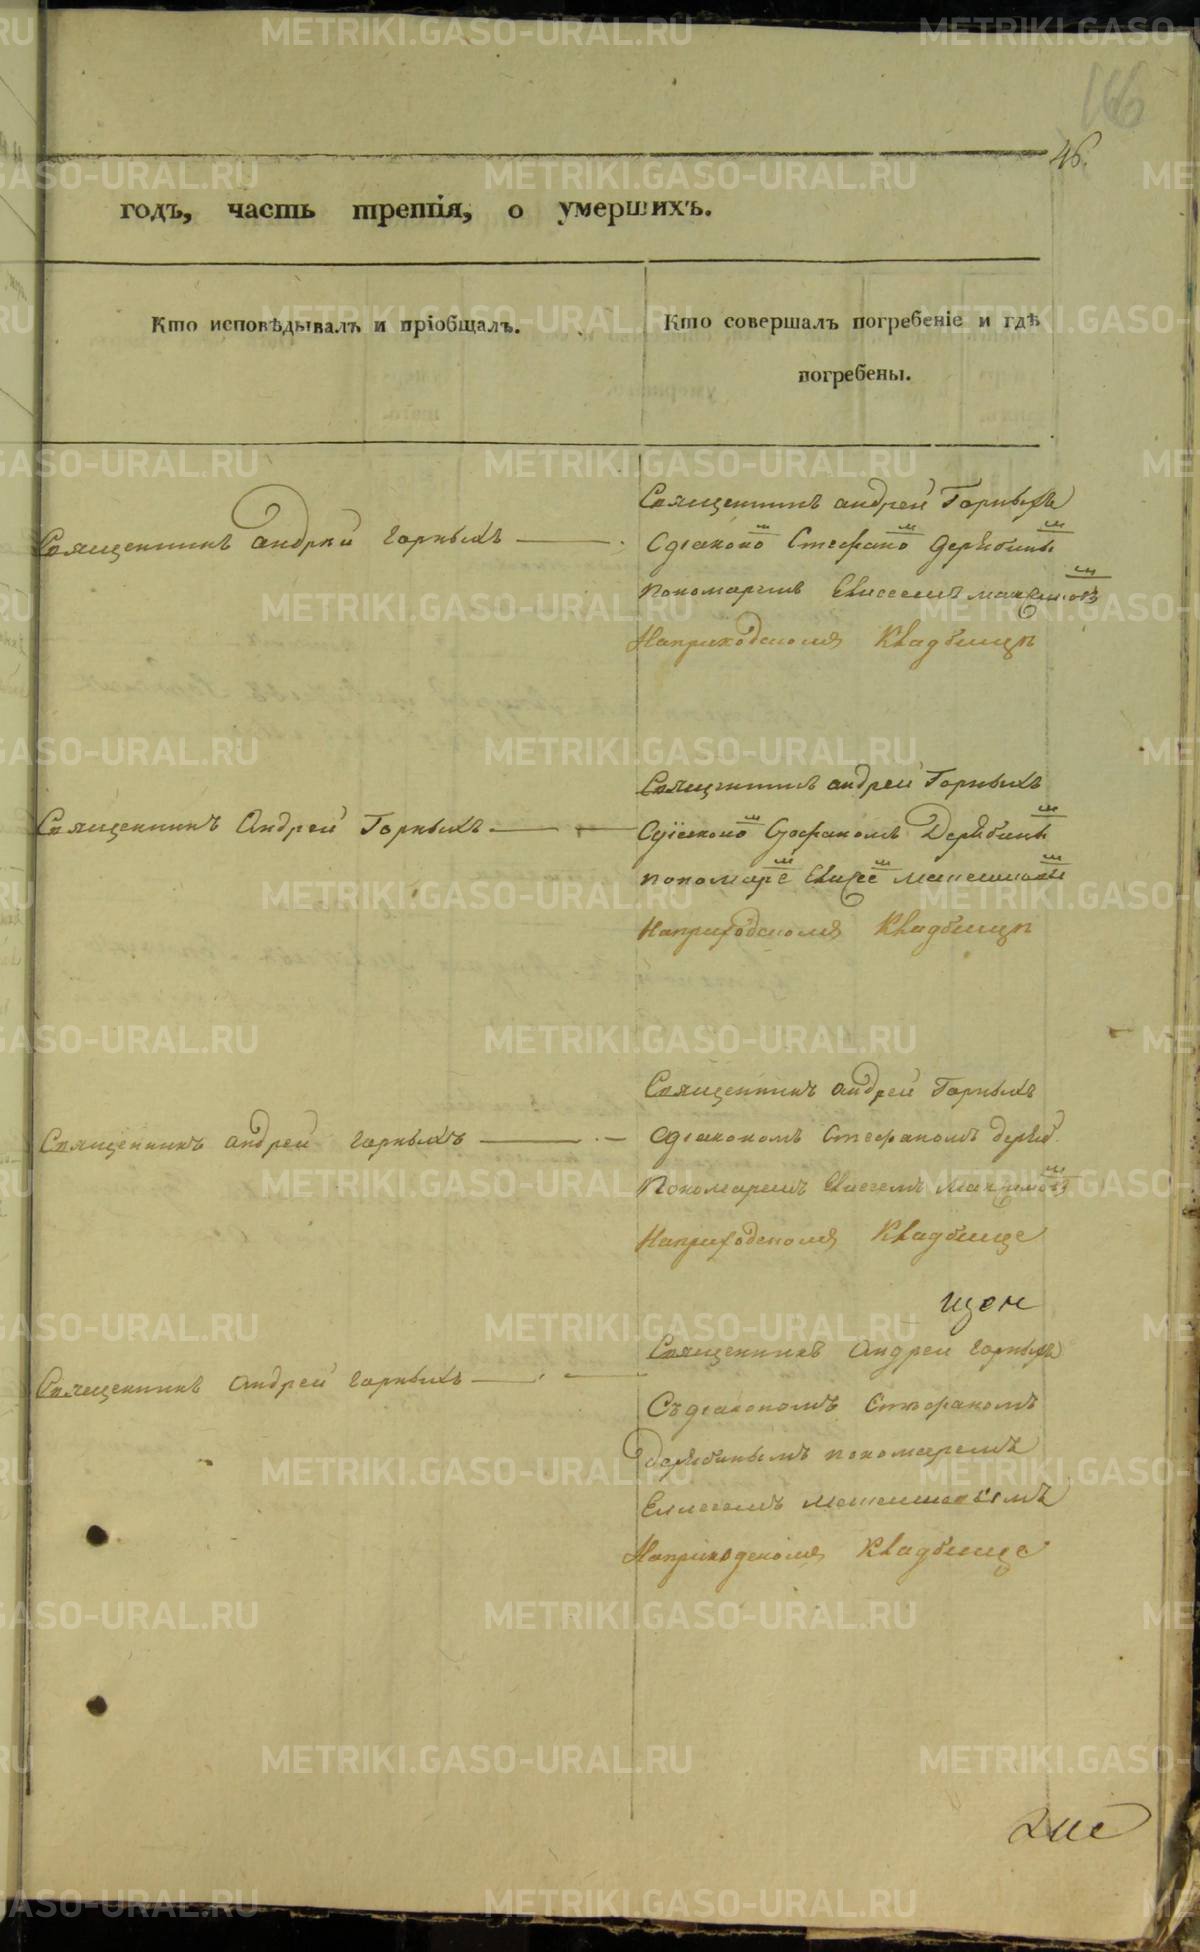 166
46.
годъ, часть третія, о умершихъ.
Кто исповѣдывалъ и пріобщалъ.
Кто совершалъ погребеніе и гдѣ
погребены.
Священникъ андрей Горныхъ
Священникъ андрей горныхъ
Сдіаконо м Стефано м Дерябины м
пономаремъ Елисеемъ максимовы м
Наприходскомъ Кладбищѣ
Священникъ андрей Горныхъ
Священникъ Андрей Горныхъ
Сдіаконо м Стефаномъ Дерябины м
пономаре м Елисее м максимовы м
Наприходскомъ Кладбищѣ
Священникъ андрей Горныхъ
Священникъ андрей горныхъ
Сдіакономъ Стефаномъ деряб.
Пономаремъ Елисеемъ Максимовы м
Наприходскомъ Кладбище
Священникъ Андрей горныхъ
Священникъ Андрей горныхъ
Съдіакономъ Стефаномъ
Дерябинымъ пономаремъ
Елисеемъ максимовымъ
Наприходскомъ Кладбище
METRIKI.GASO-URAL.RU